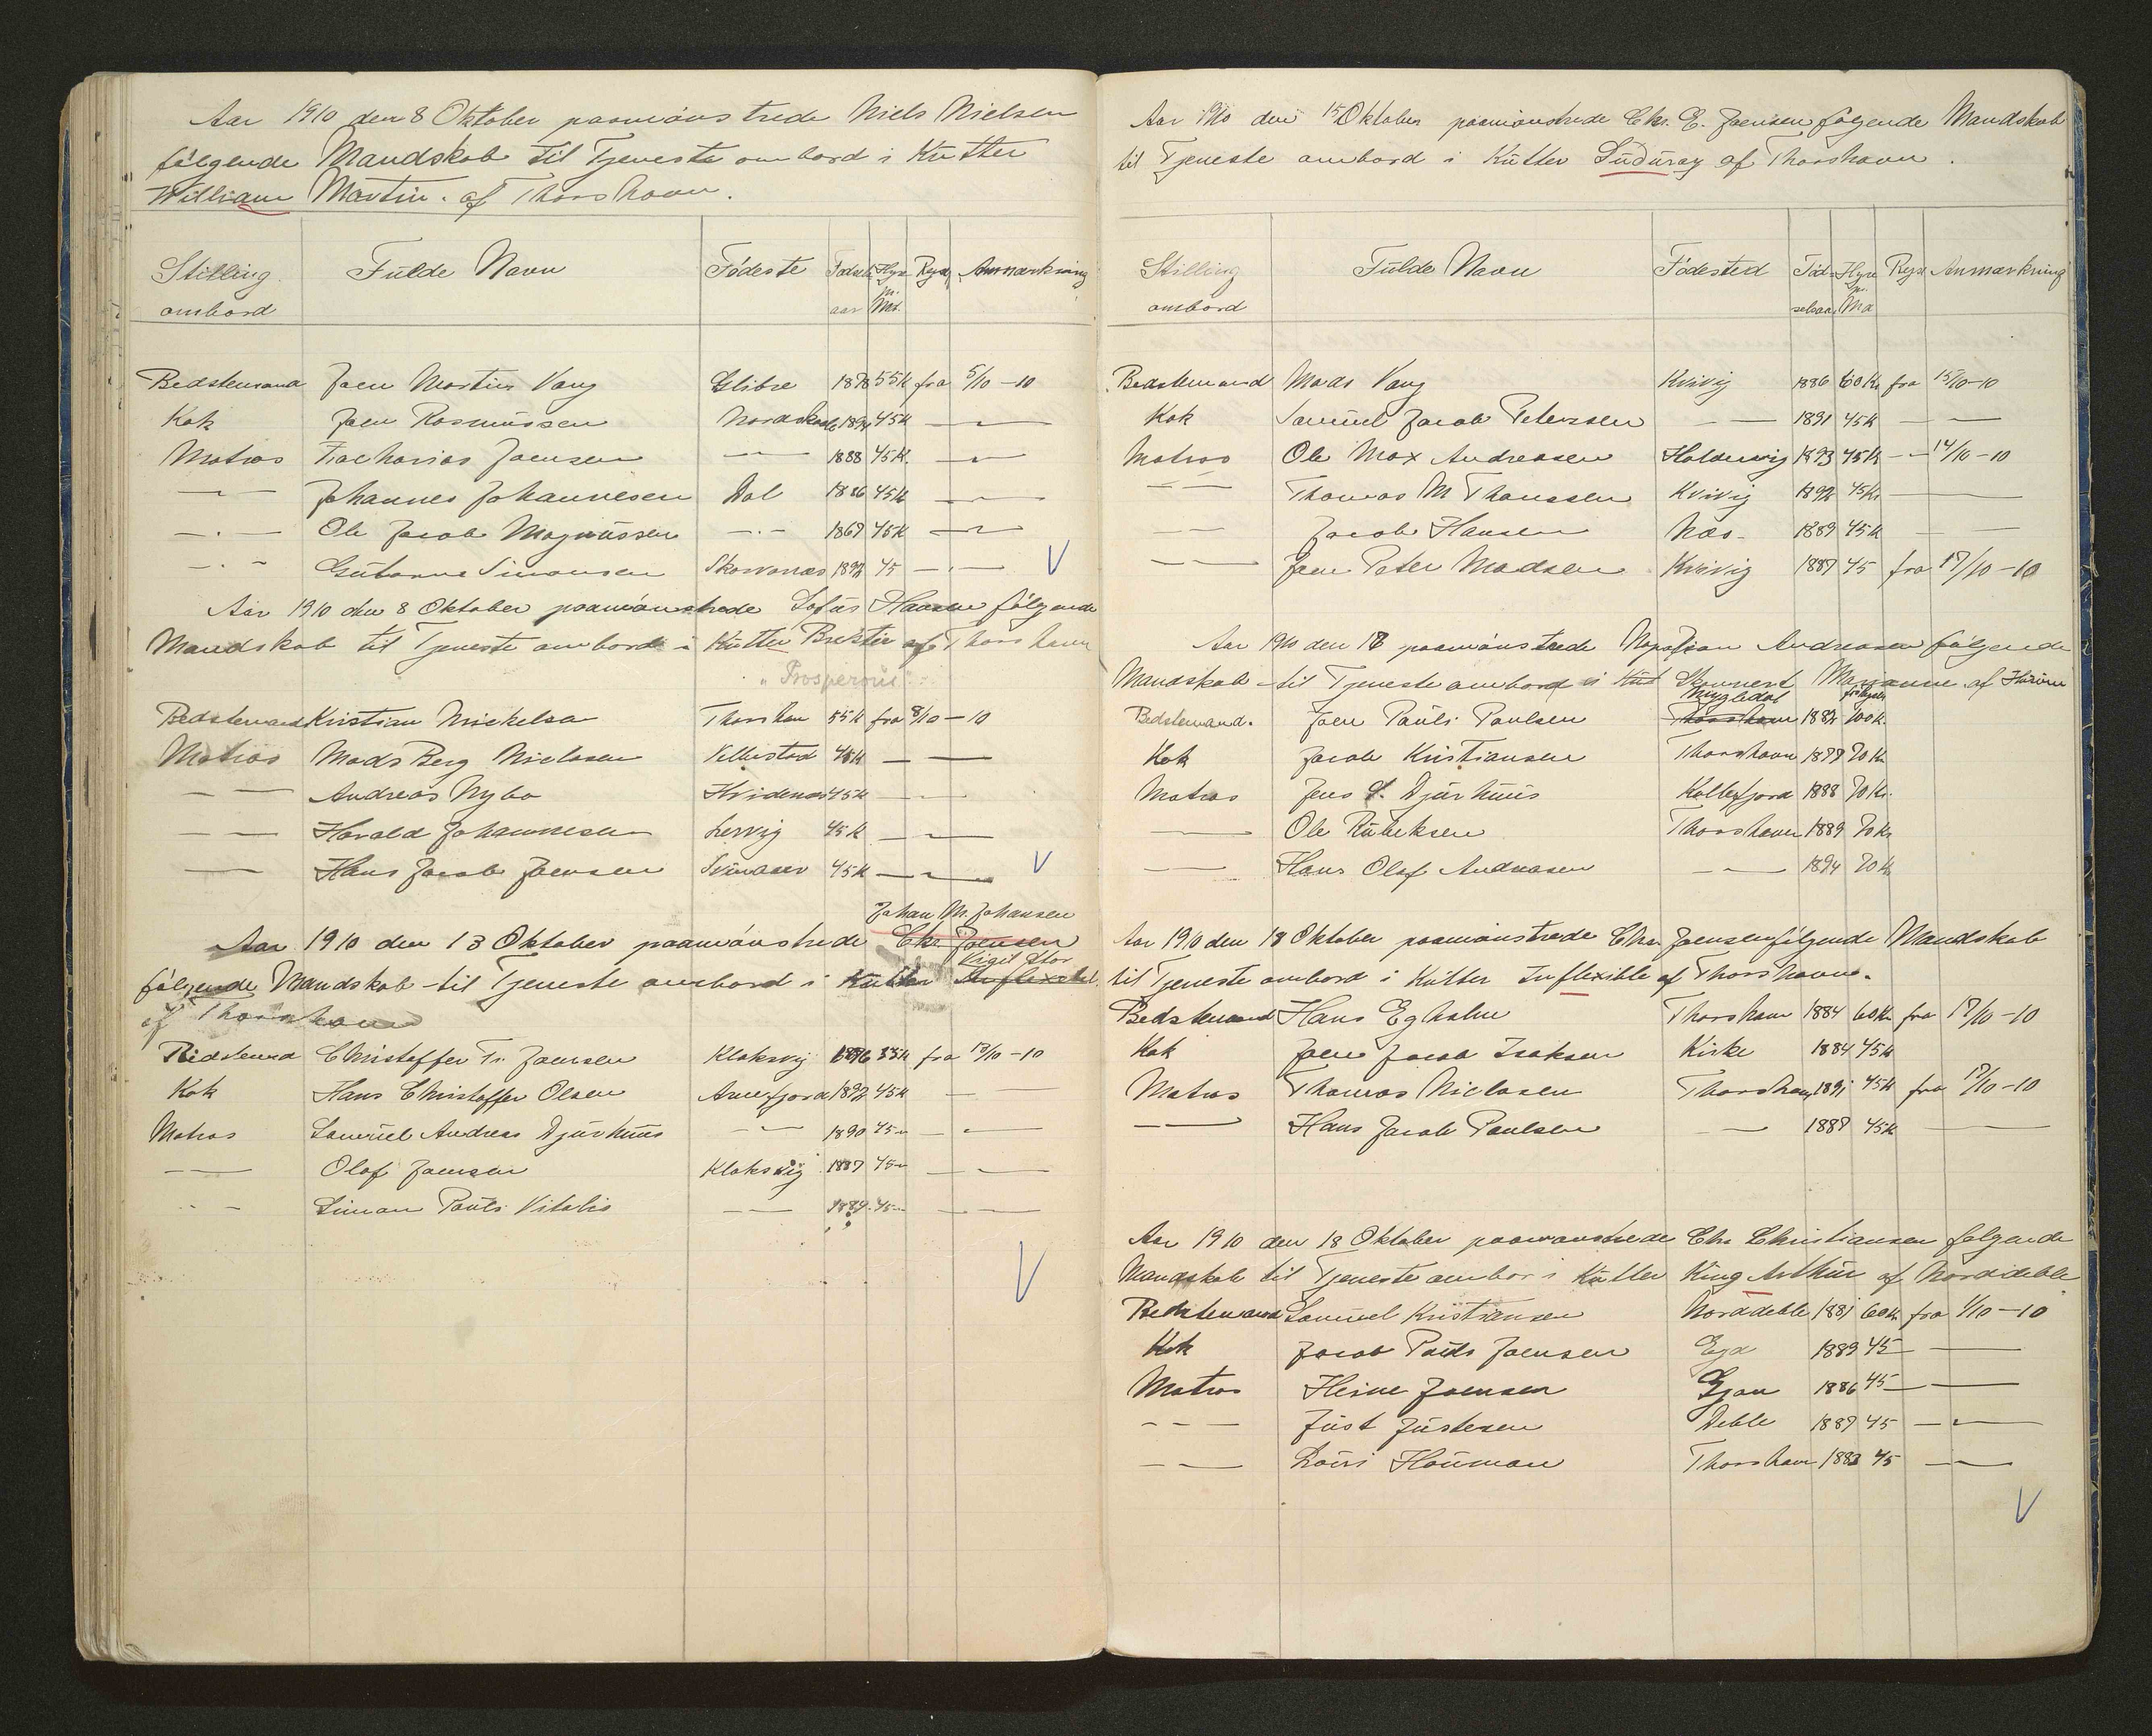 Aar 1910 den 8 Oktober paamönstrede Niels Nielsen
følgende Mandskab til Tjeneste ombord i Kutter
William Martin. af Thorshavn.
Stilling ombord Fulde Navn Födeste Födsels aar Hyre pr. Md. Rejse Anmærkning
Bedstemand Joen Martin Vang Glibre 1878 55 K fra 5/10-10
Kok Joen Rasmussen Nordskole 45 K — —
Matros Zacharias Joensen — 1888 45 K. — —
— Johannes Johannesen Dal 1886 45 K — —
— . — Ole Jacob Magnussen — . — 1867 45 K — —
— . — Simonsen Skorvanæs 1892 45 — . — V
Aar 1910 den 8 Oktober paamönstrede Sofus Hansen følgende
Mandskab til Tjeneste ombord i Kutter af Thorshavn
"Prosperous"
Bedstemand Kristian Mickelsen Thorshavn 55 K fra 8/10-10
Matros Mads Berg Niclasen Velbestad 45 K — —
— — Andreas Nybo Hvidenæs 45 K — —
— — Harald Johannesen Lervig 45 K — —
— — Hans Jacob Joensen Svinaaer 45 K — — V
Johan M. Johansen
Aar 1910 den 13 Oktober paamönstrede Chr. Joensen
Kigit Stor
følgende Mandskab til Tjeneste ombord i Kutter Inflexibel
af Thorshavn
Bedstemd Christoffer Fr. Joensen Klaksvig 1876 55 K fra 13/10-10
Kok Hans Christoffer Olsen Arnefjord 1892 45 K — —
Matros Samuel Andreas Djurhuus — — 1890 45 — —
— — Olaf Joensen Klaksvig 1887 45 — —
— — Simon Pauli Vitalis — — 1884 45 — —
V
Aar 1910 den 15 Oktober paamönstrede Chr. E. Joensen følgende Mandskab
til Tjeneste ombord i Kutter Suduroy af Thorshavn.
Stilling ombord Fulde Navn Födested Födselsaar Hyre pr. Md Rejse Anmærkning
Bedstemand Mads Vang Kvivig 1886 60 Kr fra 15/10-10
Kok Samuel Jacob Peterssen — — 1891 45 K — —
Matros Ole Max Andreasen Haldervig 1893 45 K — 14/10-10
— — Thomas M Thomssen Kvivig 1892 45 Kr — —
— — Jacob Hansen Næs 1889 45 K — —
— — Joen Peter Madsen Kvivig 1887 45 fra 17/10-10
Aar 1910 den 18 paamönstrede Napolion Andreasen følgende
Mandskab til Tjeneste ombord i Kut Skonnert Marganne af
Mygledal
Bedstemand. Joen Pauli Poulsen Thorshavn 1882 100 K.
Kok Jacob Kristiansen Thorshavn 1877 70 Kr
Matros Jens S. Djurhuus Kollefjord 1888 70 Kr.
— Ole Rubeksen Thorshavn 1889 70 Kr
— Hans Olaf Andreasen — — 1894 70 K
Aar 1910 den 18 Oktober paamönstrede Chr. Joensen følgende Mandskab
til Tjeneste ombord i Kutter Inflexible af Thorshavn.
Bedstemand Hans Egholm Thorshavn 1884 60 Kr fra 17/10-10
Kok Joen Jacob Isaksen Kirke 1884 45 K
Matros Thomas Niclasen Thorshavn 1891 45 K fra 17/10-10
— Hans Jacob Poulsen — 1887 45 K —
Aar 1910 den 18 Oktober paamonstrede Chr Christiansen følgende
Mandskab til Tjeneste ombor i Kutter King Arthur af Norddeble
Bedstemand Samuel Kristiansen Norddeble 1881 60 Kr fra 1/10-10
Kok Jacob Pauls Joensen Ejde 1889 45 — —
Matros Heine Joensen Gjov 1886 45 — —
— — Just Justesen Deble 1887 45 — —
— — Louis Houman Thorshavn 1883 45 — —
V